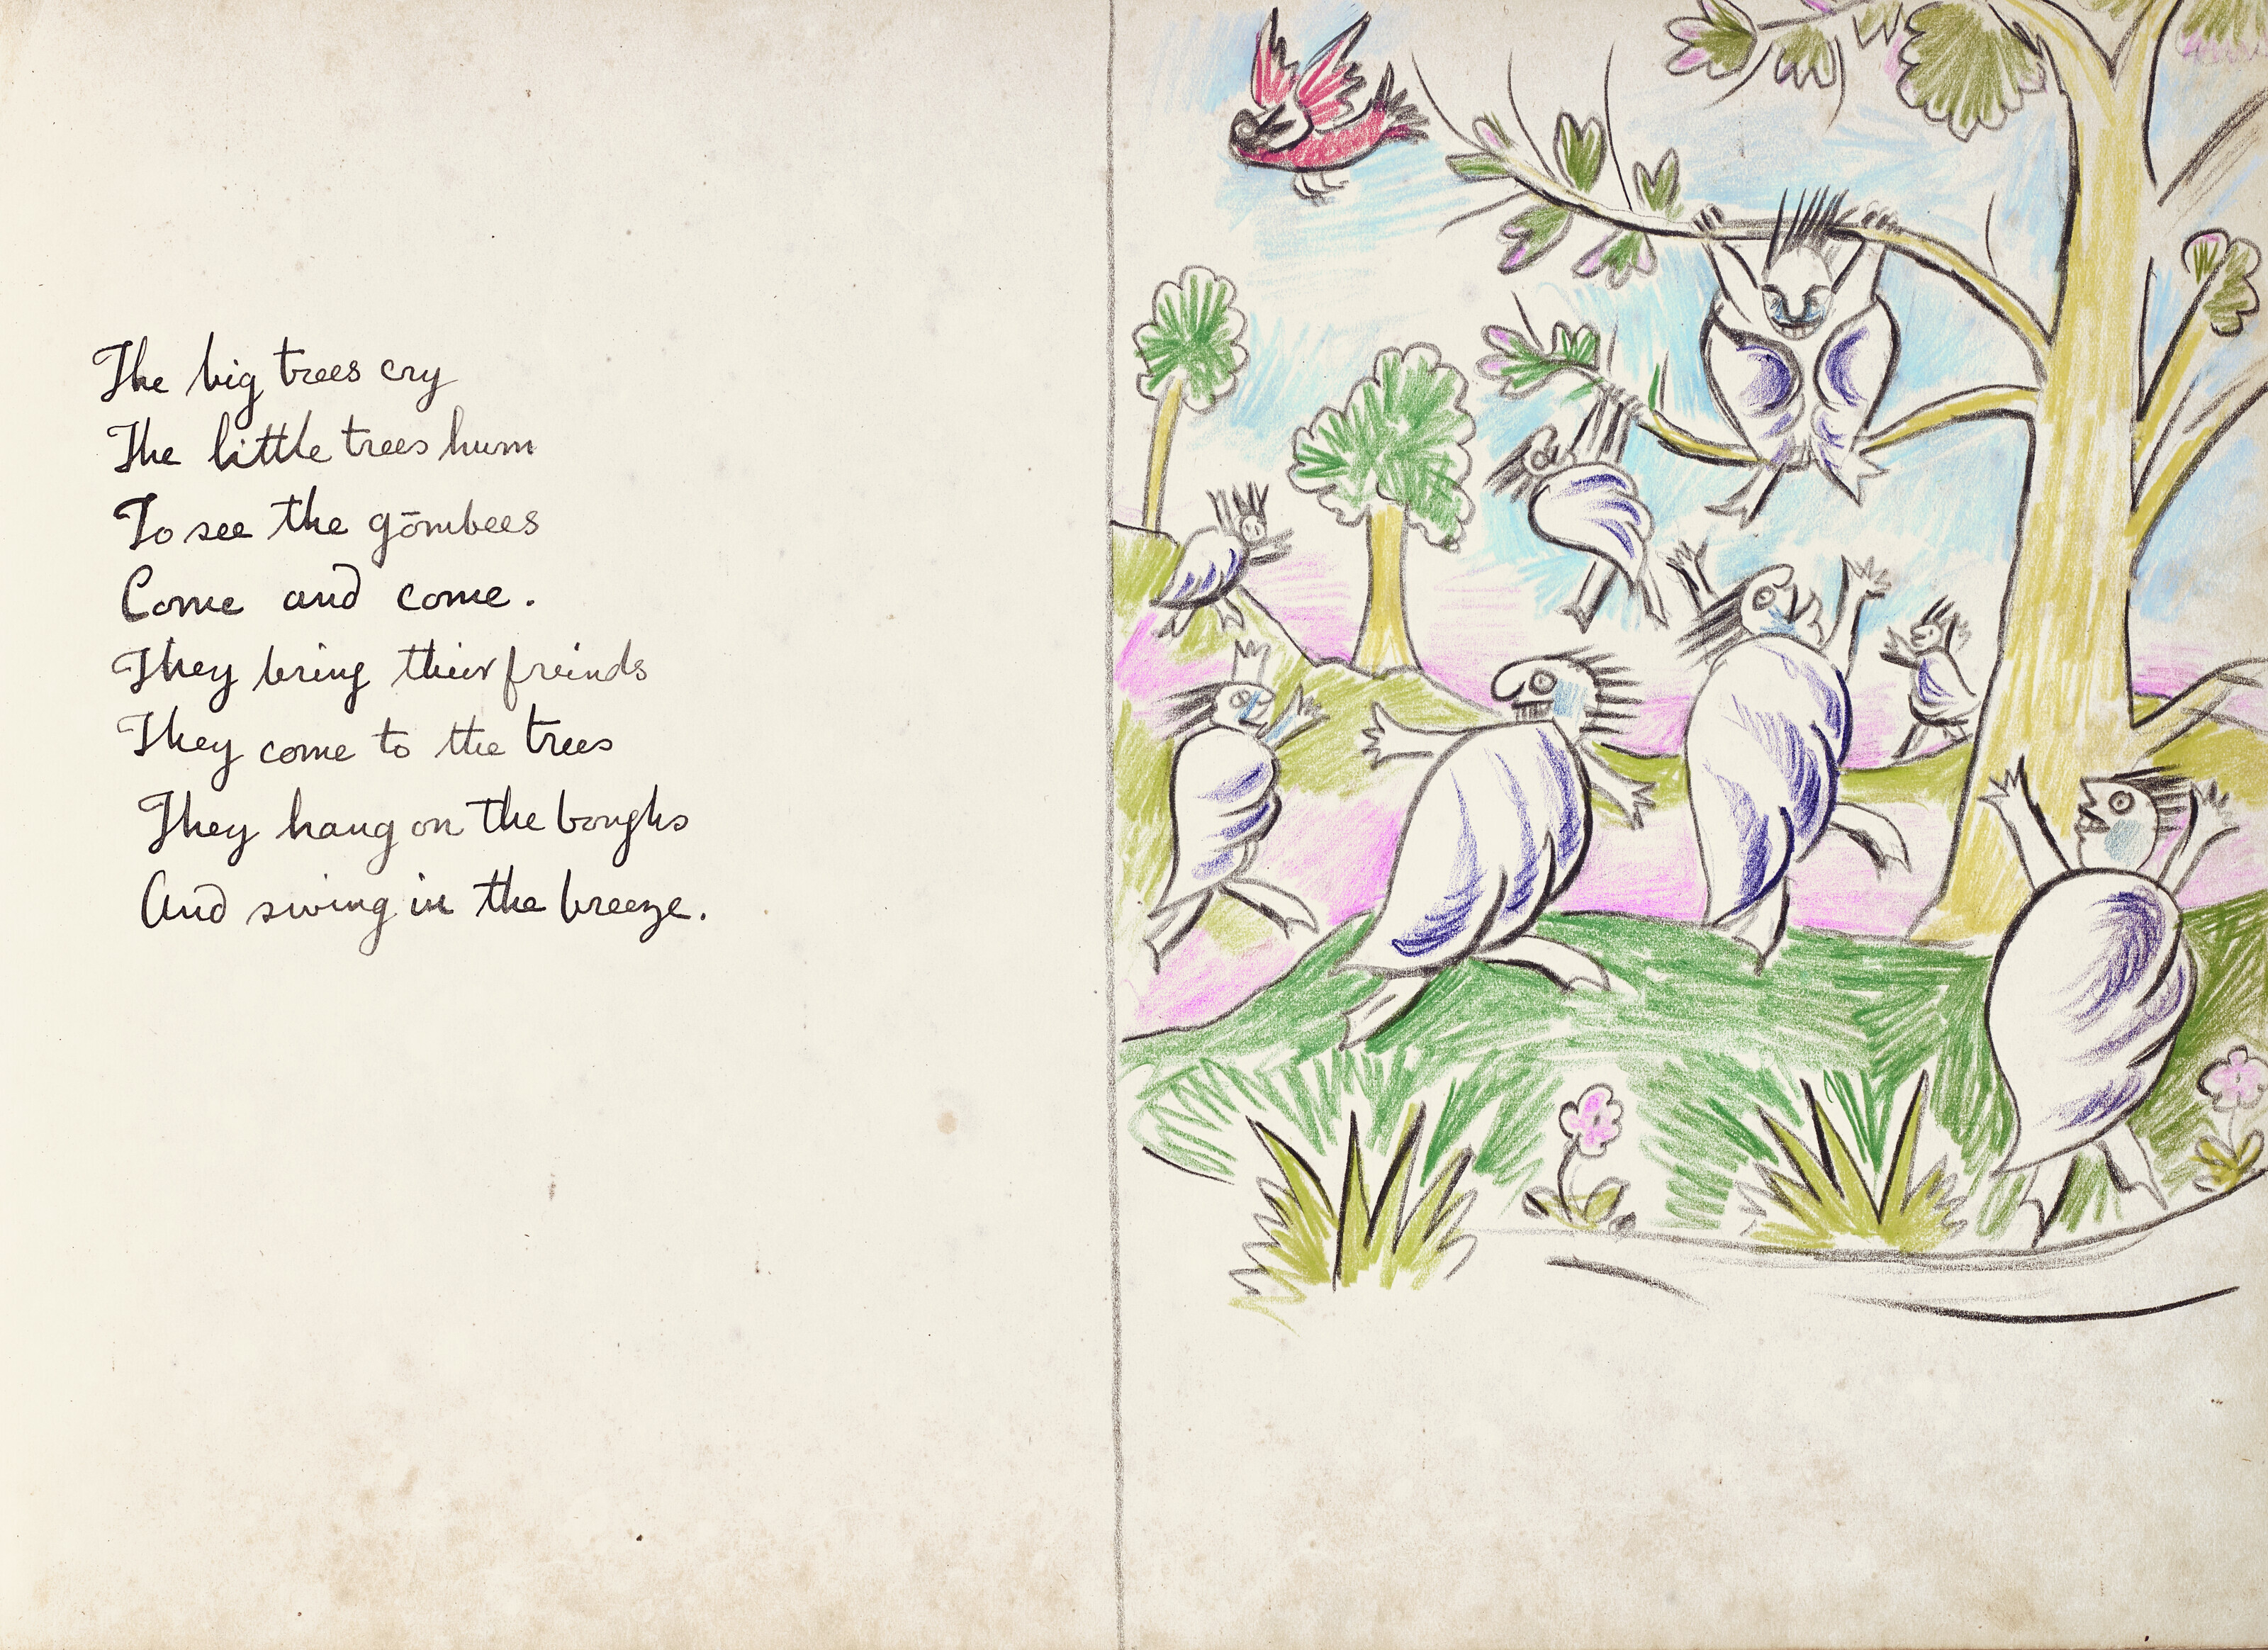 The big trees cry
The little trees hum
To see the gōmbees
Come and come.
They bring their freinds
They come to the trees
They hang on the boughs
And swing in the breeze.